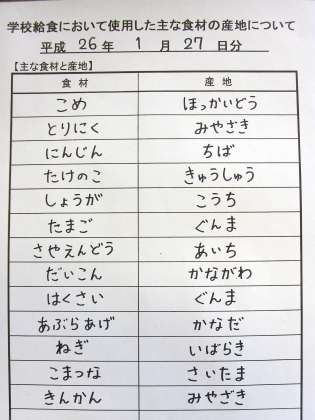 学校給食において使用した主な食材の産地について
平成 26 年 1 月 27 日分
【主な食材と産地】
食材 産地
こめ ほっかいどう
とりにく みやざき
にんじん ちば
たけのこ きゅうしゅう
しょうが こうち
たまご ぐんま
さやえんどう あいち
だいこん かながわ
はくさい ぐんま
あぶらあげ かなだ
ねぎ いばらき
こまつな さいたま
きんかん みやざき